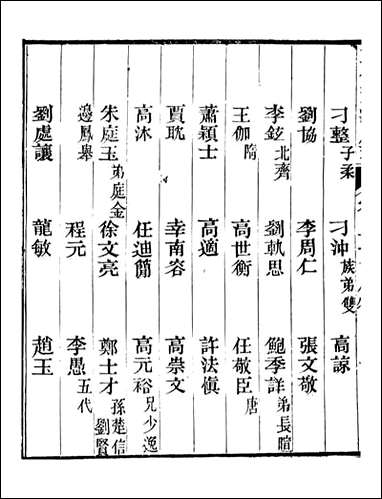 刁整子柔 刁沖族弟雙 高諒
劉協 李周仁 張文敬
李鉉北齊 劉軌思 鮑季詳弟長暄
王伽隋 高世衡 任敬臣唐
蕭穎士 高適 許法愼
賈耽 幸南容 高崇文
高沐 任迪簡 高元裕兄少逸
朱庭玉弟庭金 徐文亮 鄭士才孫楚信 劉賢
邊鳳舉 程元 李愚五代
劉處讓 龍敏 趙玉